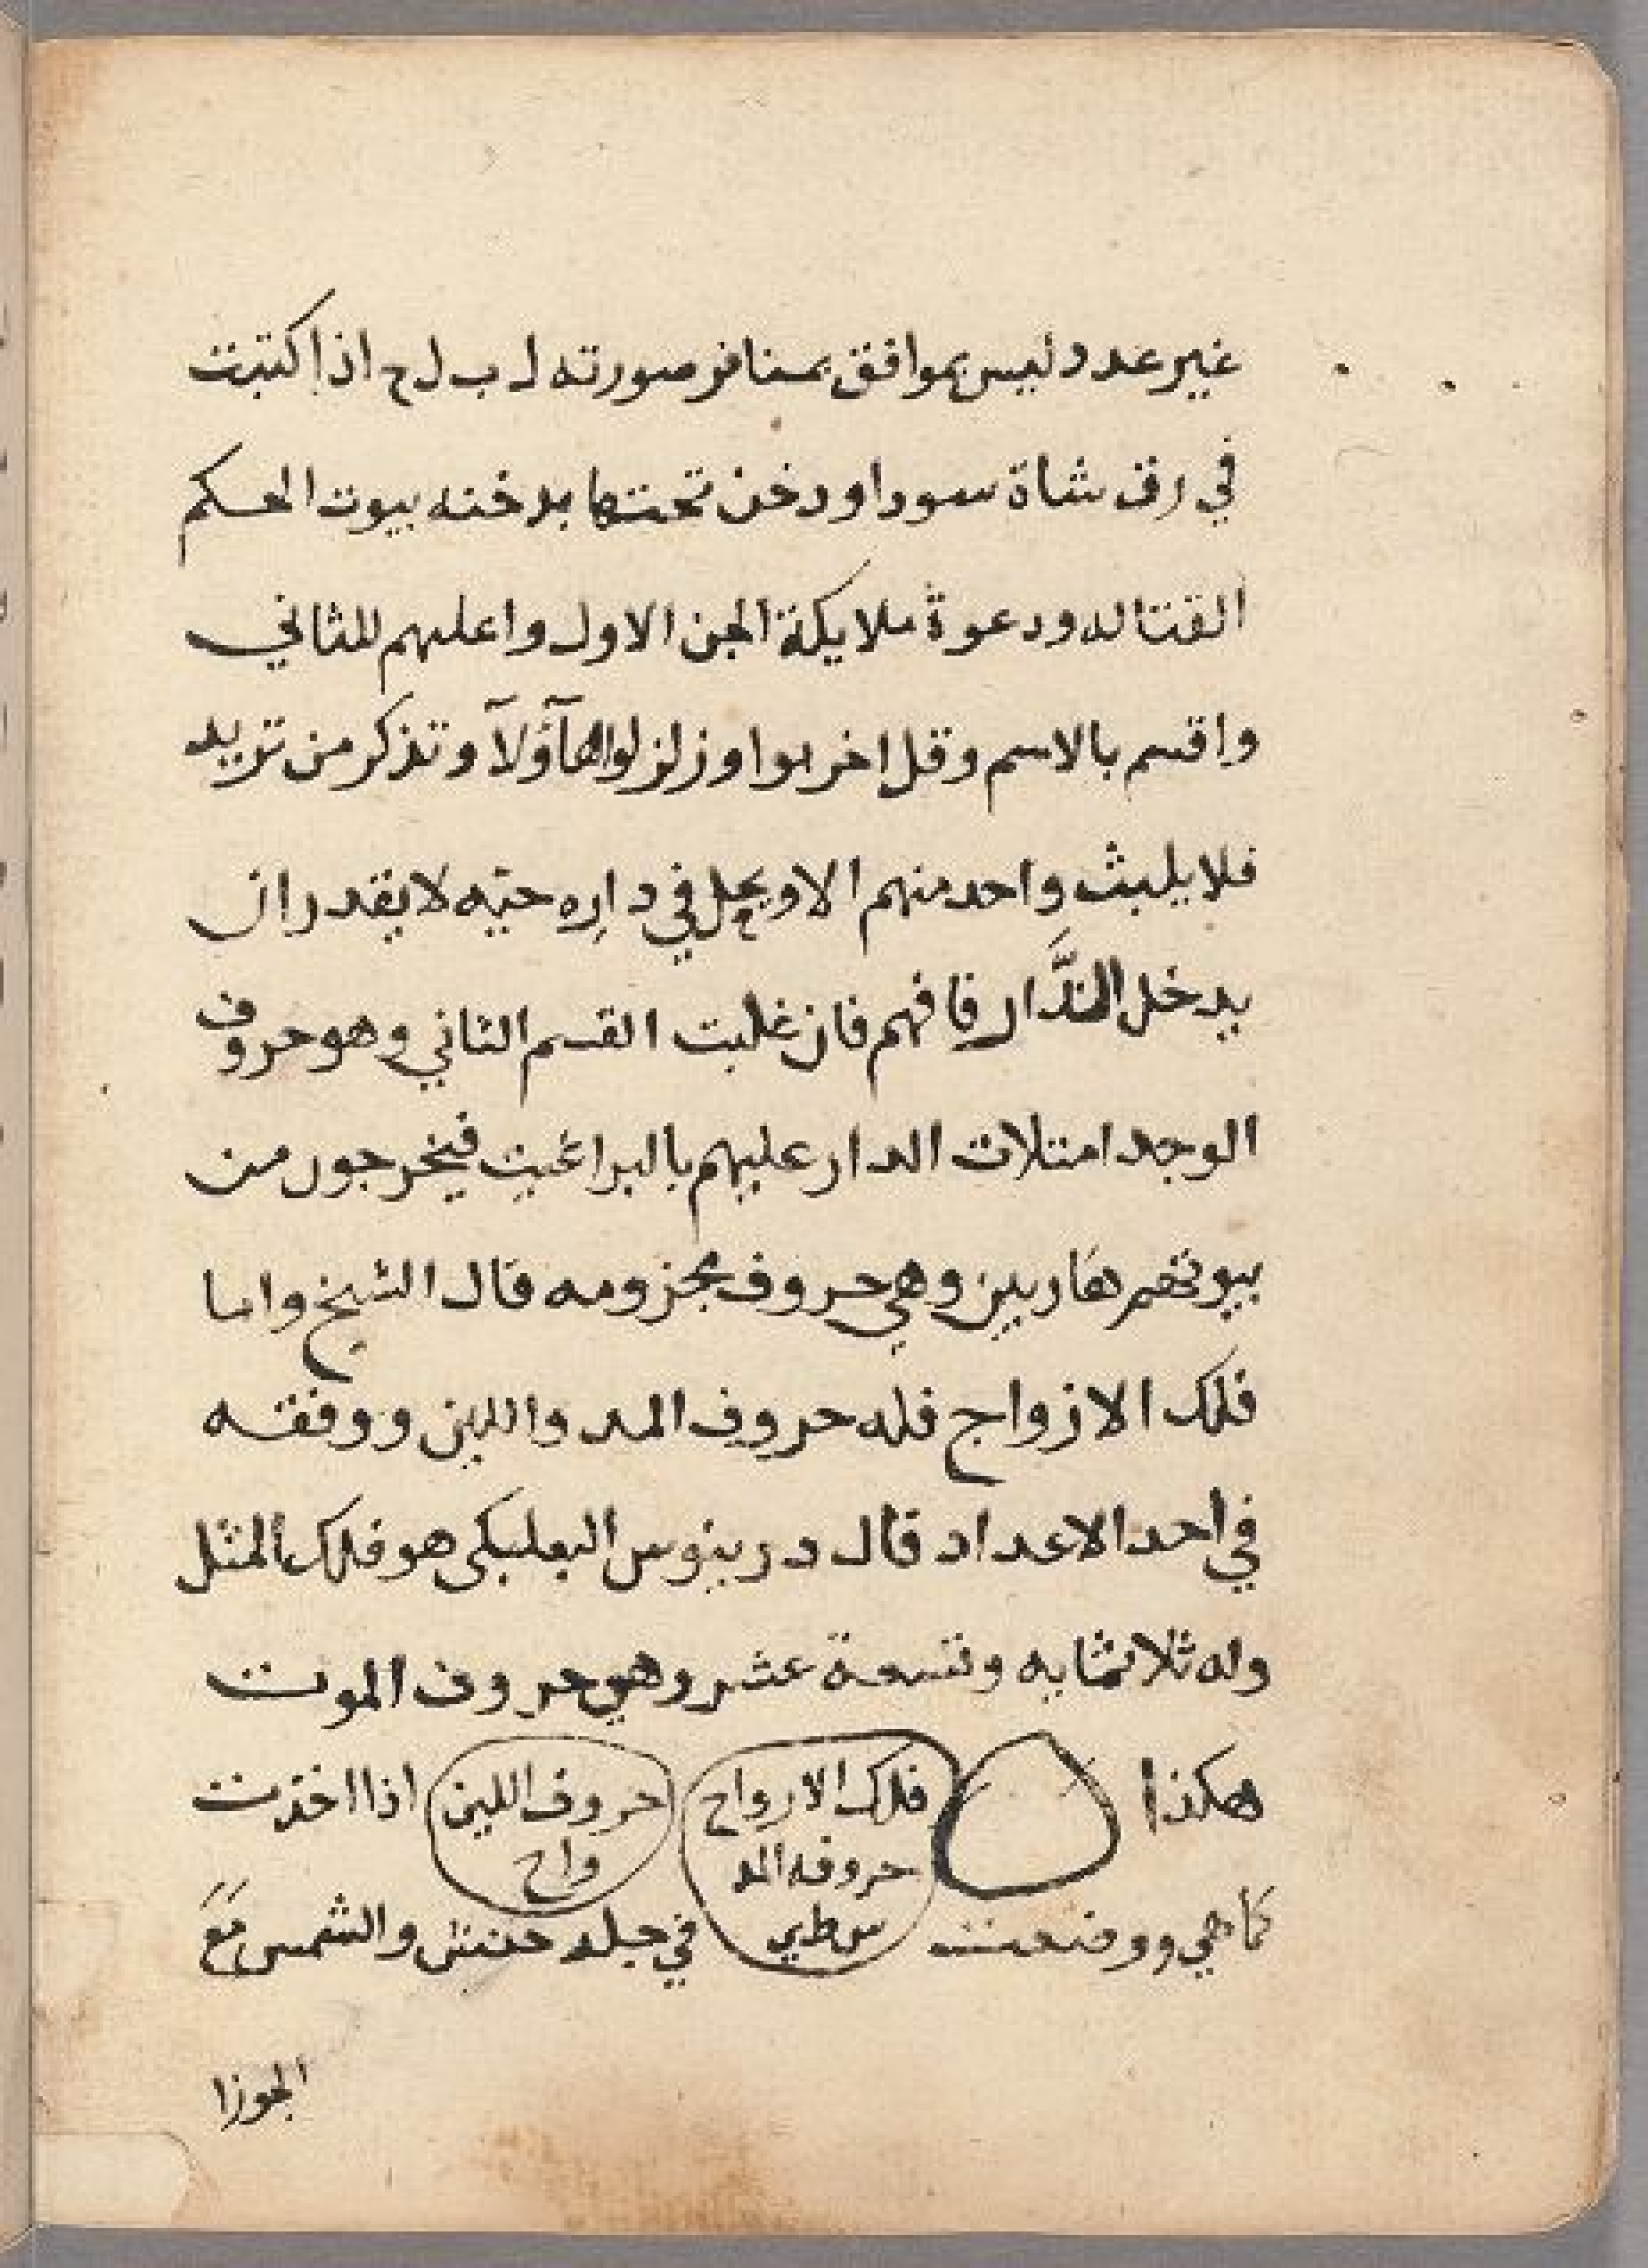 غير عدد ليس بموافق بمنافر صورته ل ب ل ح اذا كتبت
في رق شاة سودا ودخن تحتها بدخنه بيوت الحكم
القتاله ودعوة ملايكة الجن الاول واعليهم للثاني
واقسم بالاسم وقل اخربوا وزلزلوا هآؤلآ وتذكر من تريد
فلا يلبث واحد منهم الا ويجل في داره حيّه لا يقدر ان
يدخل الدَّار فافهم فان غلبت القسم الثاني وهو حروف
الوجد امتلات الدار عليهم بالبراغيث فيخرجون من
بيوتهم هاربين وهي حروف مجزومه قال الشيخ واما
فلك الازواج فله حروف المد واللين ووفقه
في احد الاعداد قال درينوس البعلبكى هو فلك المثل
وله ثلاثمايه وتسعة عشر وهي حروف الموت
هكذا
فلك الارواح
حروفه المد
س ط ي
حروف اللين
واح
اذا اخذت
كما هي ووضعت في جلد حنش والشمس مَعَ
الجوزا